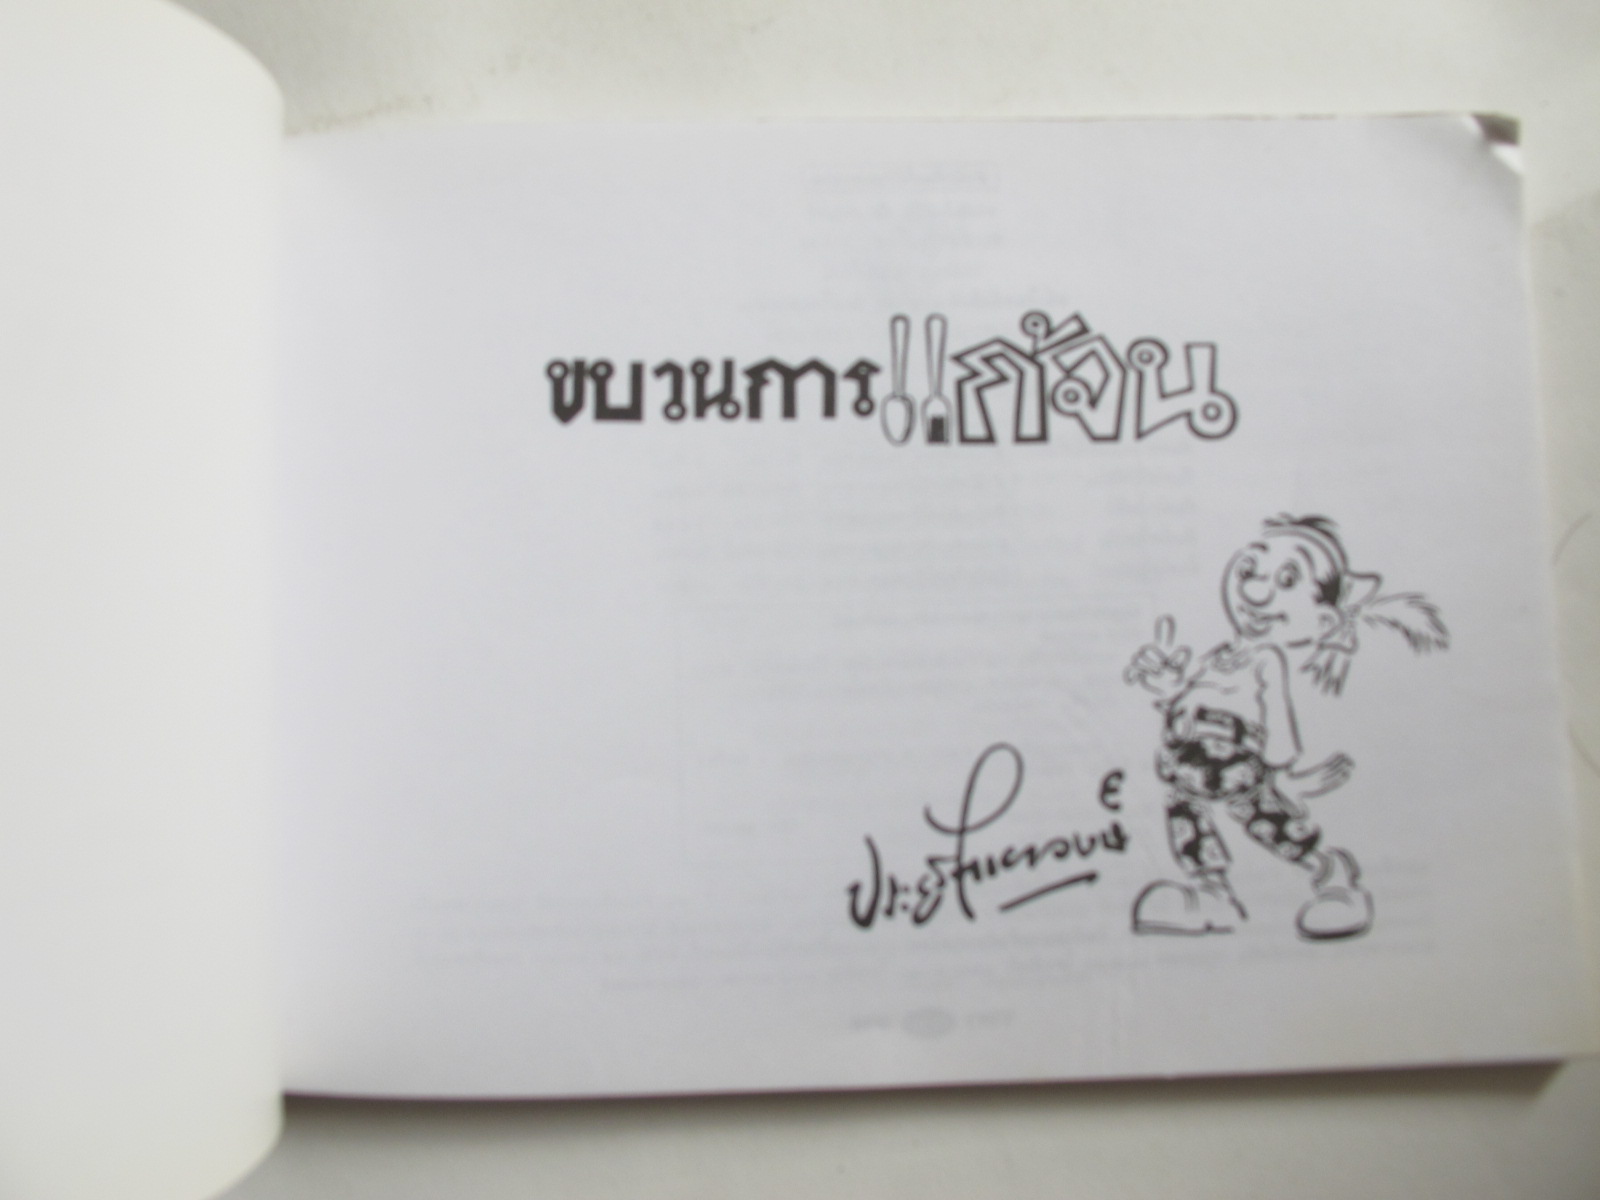 ขบวนการแก้จน
ประยูร จรรยาวงษ์